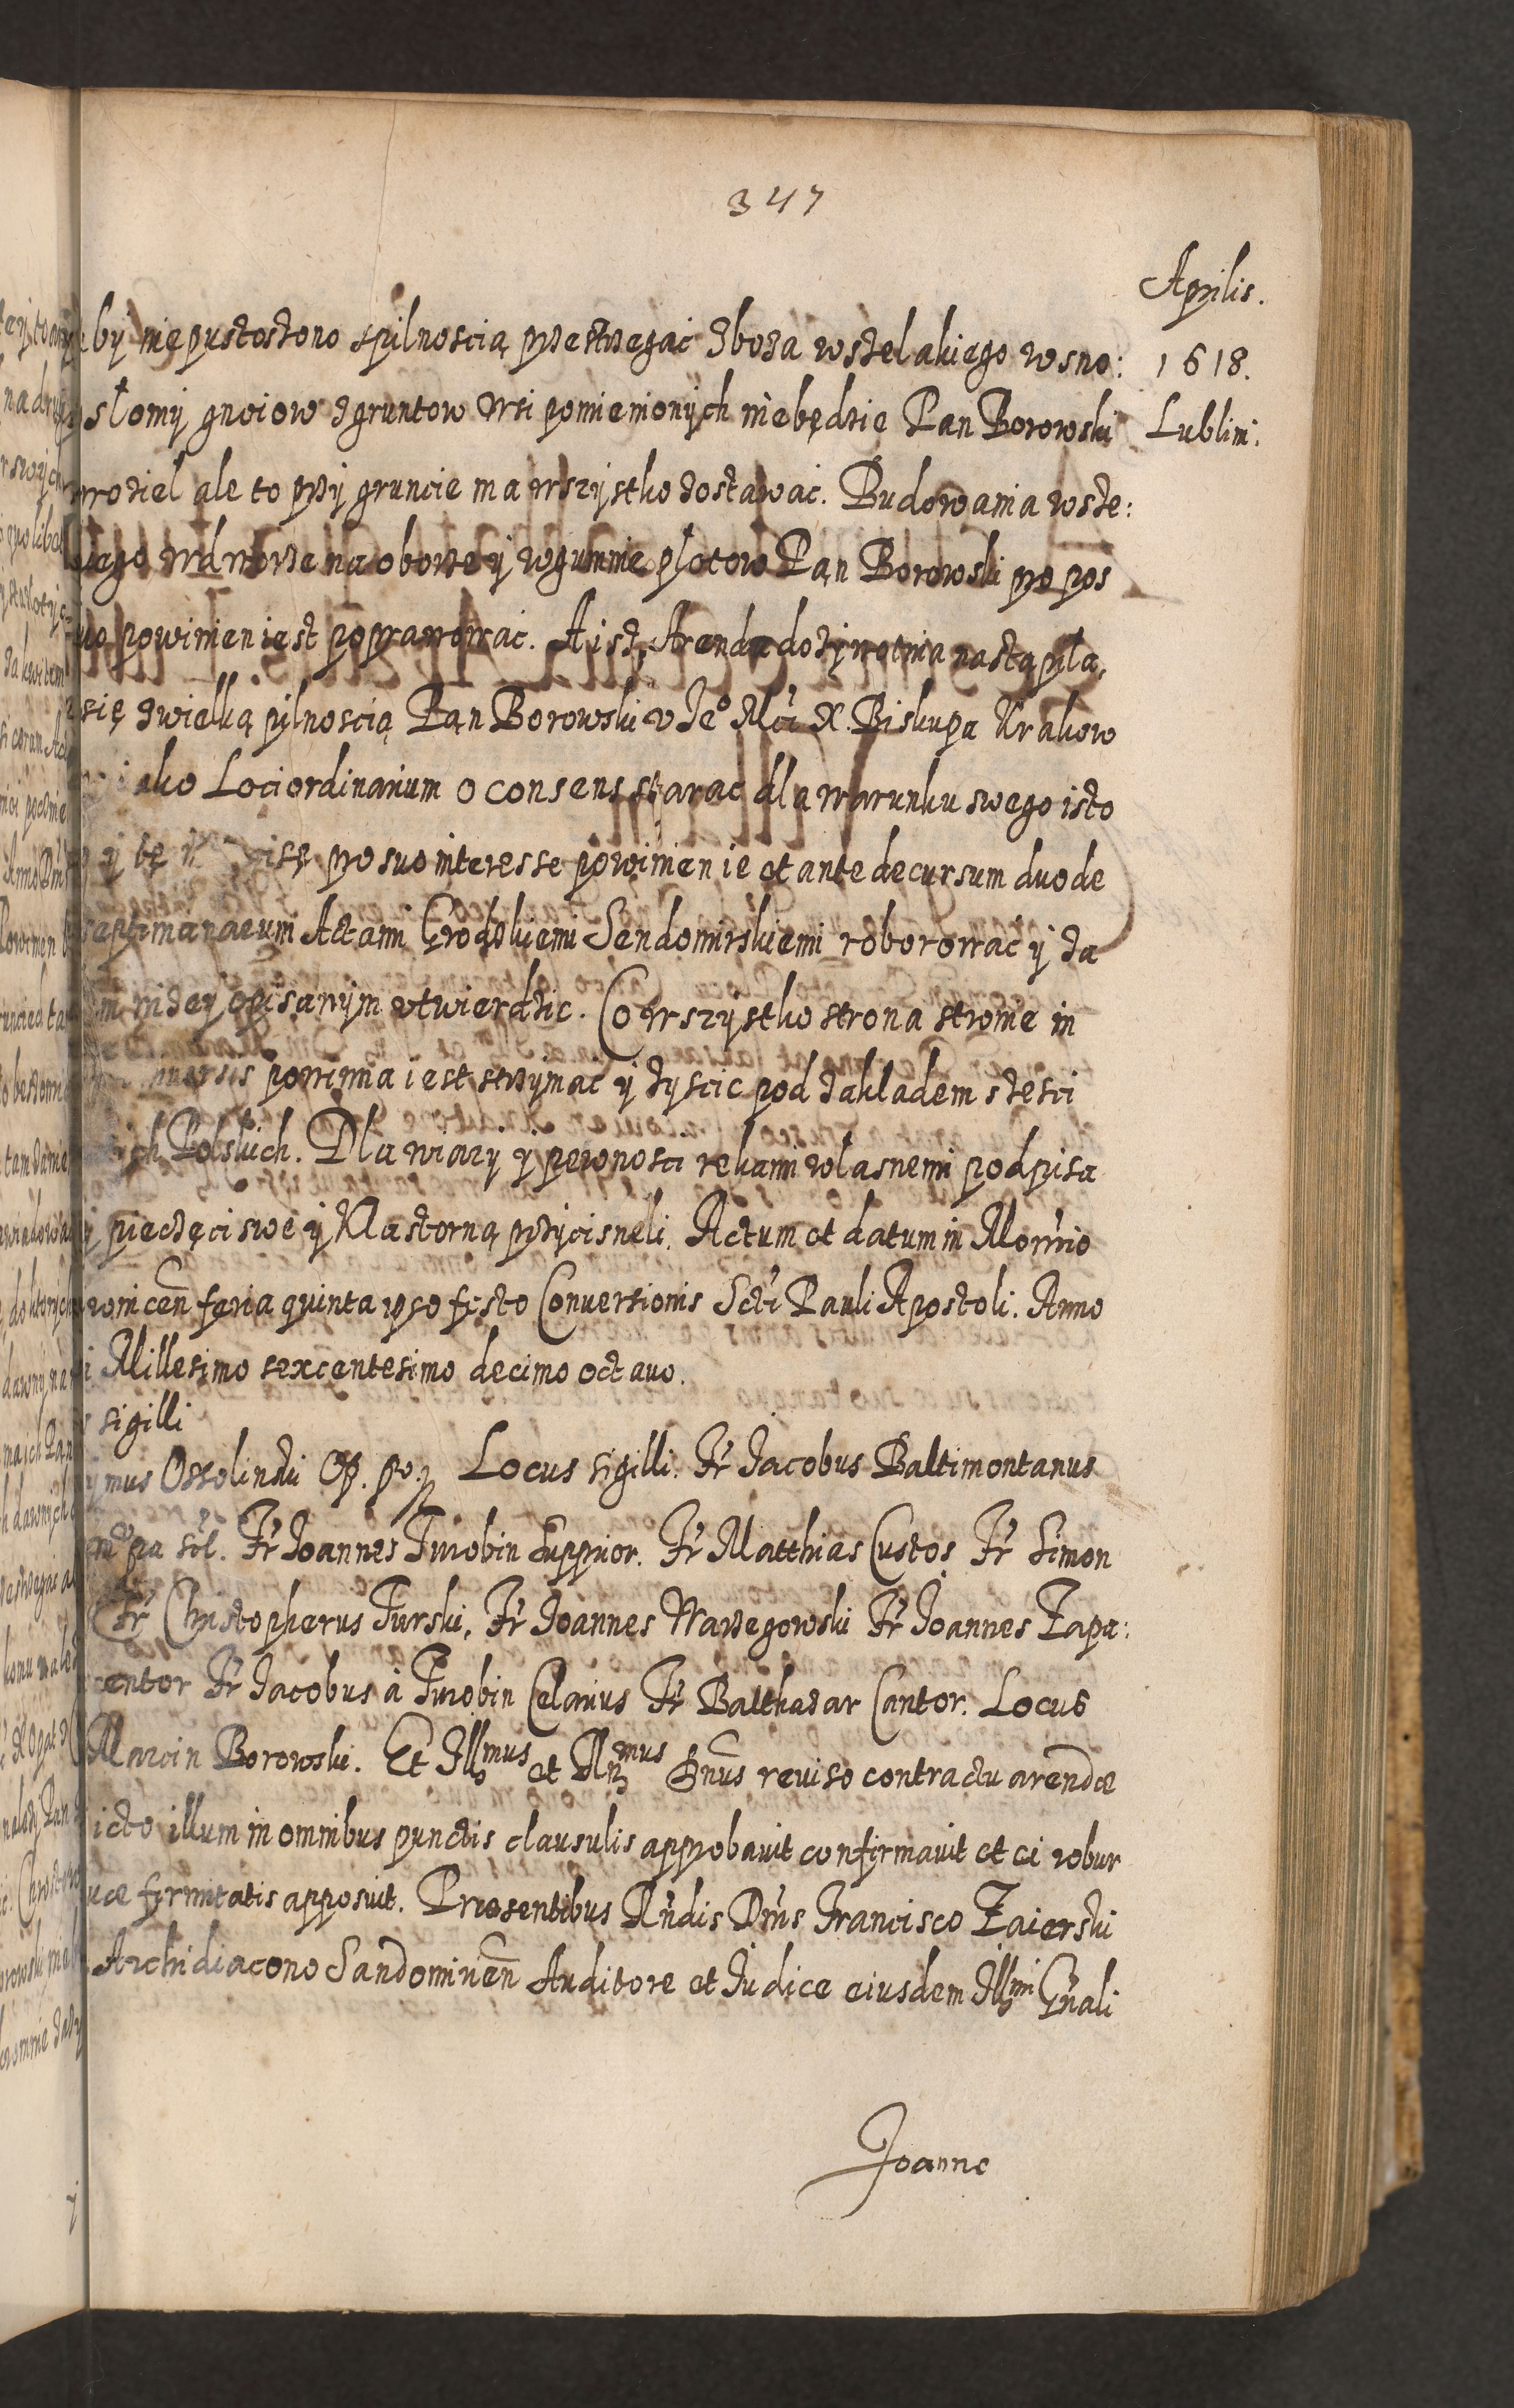 347
Aprilis.
1618.
Lublini.
by niepustoszono spilnoscią przestrzegac zboża wszelakiego w sno:
słomy gnoiow z gruntow wsi pomienionych niebędzie Pan Borowski
wodziel ale to przy gruncie ma wszystko zostawac. Budowania wsze:
kiego we dworze na oborze y w gumnie płotow Pan Borowski po pos
powinien iest poprawowac. A isz Arenda dożywotnia nastąpiła,
się z wielką pilnoscią Pan Borowski v Je° Mći X. Biskupa Krakow
iako Loci ordinarium o consens starac dla warunku swego isto
y bę pro suo interesse powinien ie et ante decursum duode
septimanarum Actami Grodzkiemi Sendomirskiemi roborowac y za
niżey opisanym utwierdzic. Co wszystko strona stronie in
powinna iest strzymac y zyscic pod zakładem szesci
Polskich. Dla wiary y pewnosci rekami własnemi podpisa
y pieczęci swe y Klasztorną przycisneli. Actum et datum in Mon̄rio
feria quinta ipso festo Conversionis Scti Pauli Apostoli. Anno
Millesimo sexcentesimo decimo octauo.
sigilli
mus Ossolinski Op. Locus sigilli. Fr̄ Jacobus Baltimontanus
Fr̄ Joannes Turobin Supprior. Fr̄ Matthias Custos Fr̄ Simon
Fr̄ Christopherus Turski, Fr̄ Joannes Warzegowski Fr̄ Joannes Zapa:
centor Fr̄ Jacobus à Turobin Celarius Fr̄ Balthazar Cantor. Locus
Marcin Borowski. Et Illmus et Rn̄mus Dn̄us reviso contractu arendæ
icto illum in omnibus punctis clausulis approbauit confirmauit et ei robur
uæ firmitatis apposuit. Præsentibus Rn̄dis Dn̄is Francisco Zaierski
Archidiacono Sandomirien̄ Auditore et Judice eiusdem Illmi Gn̄ali
Joanne